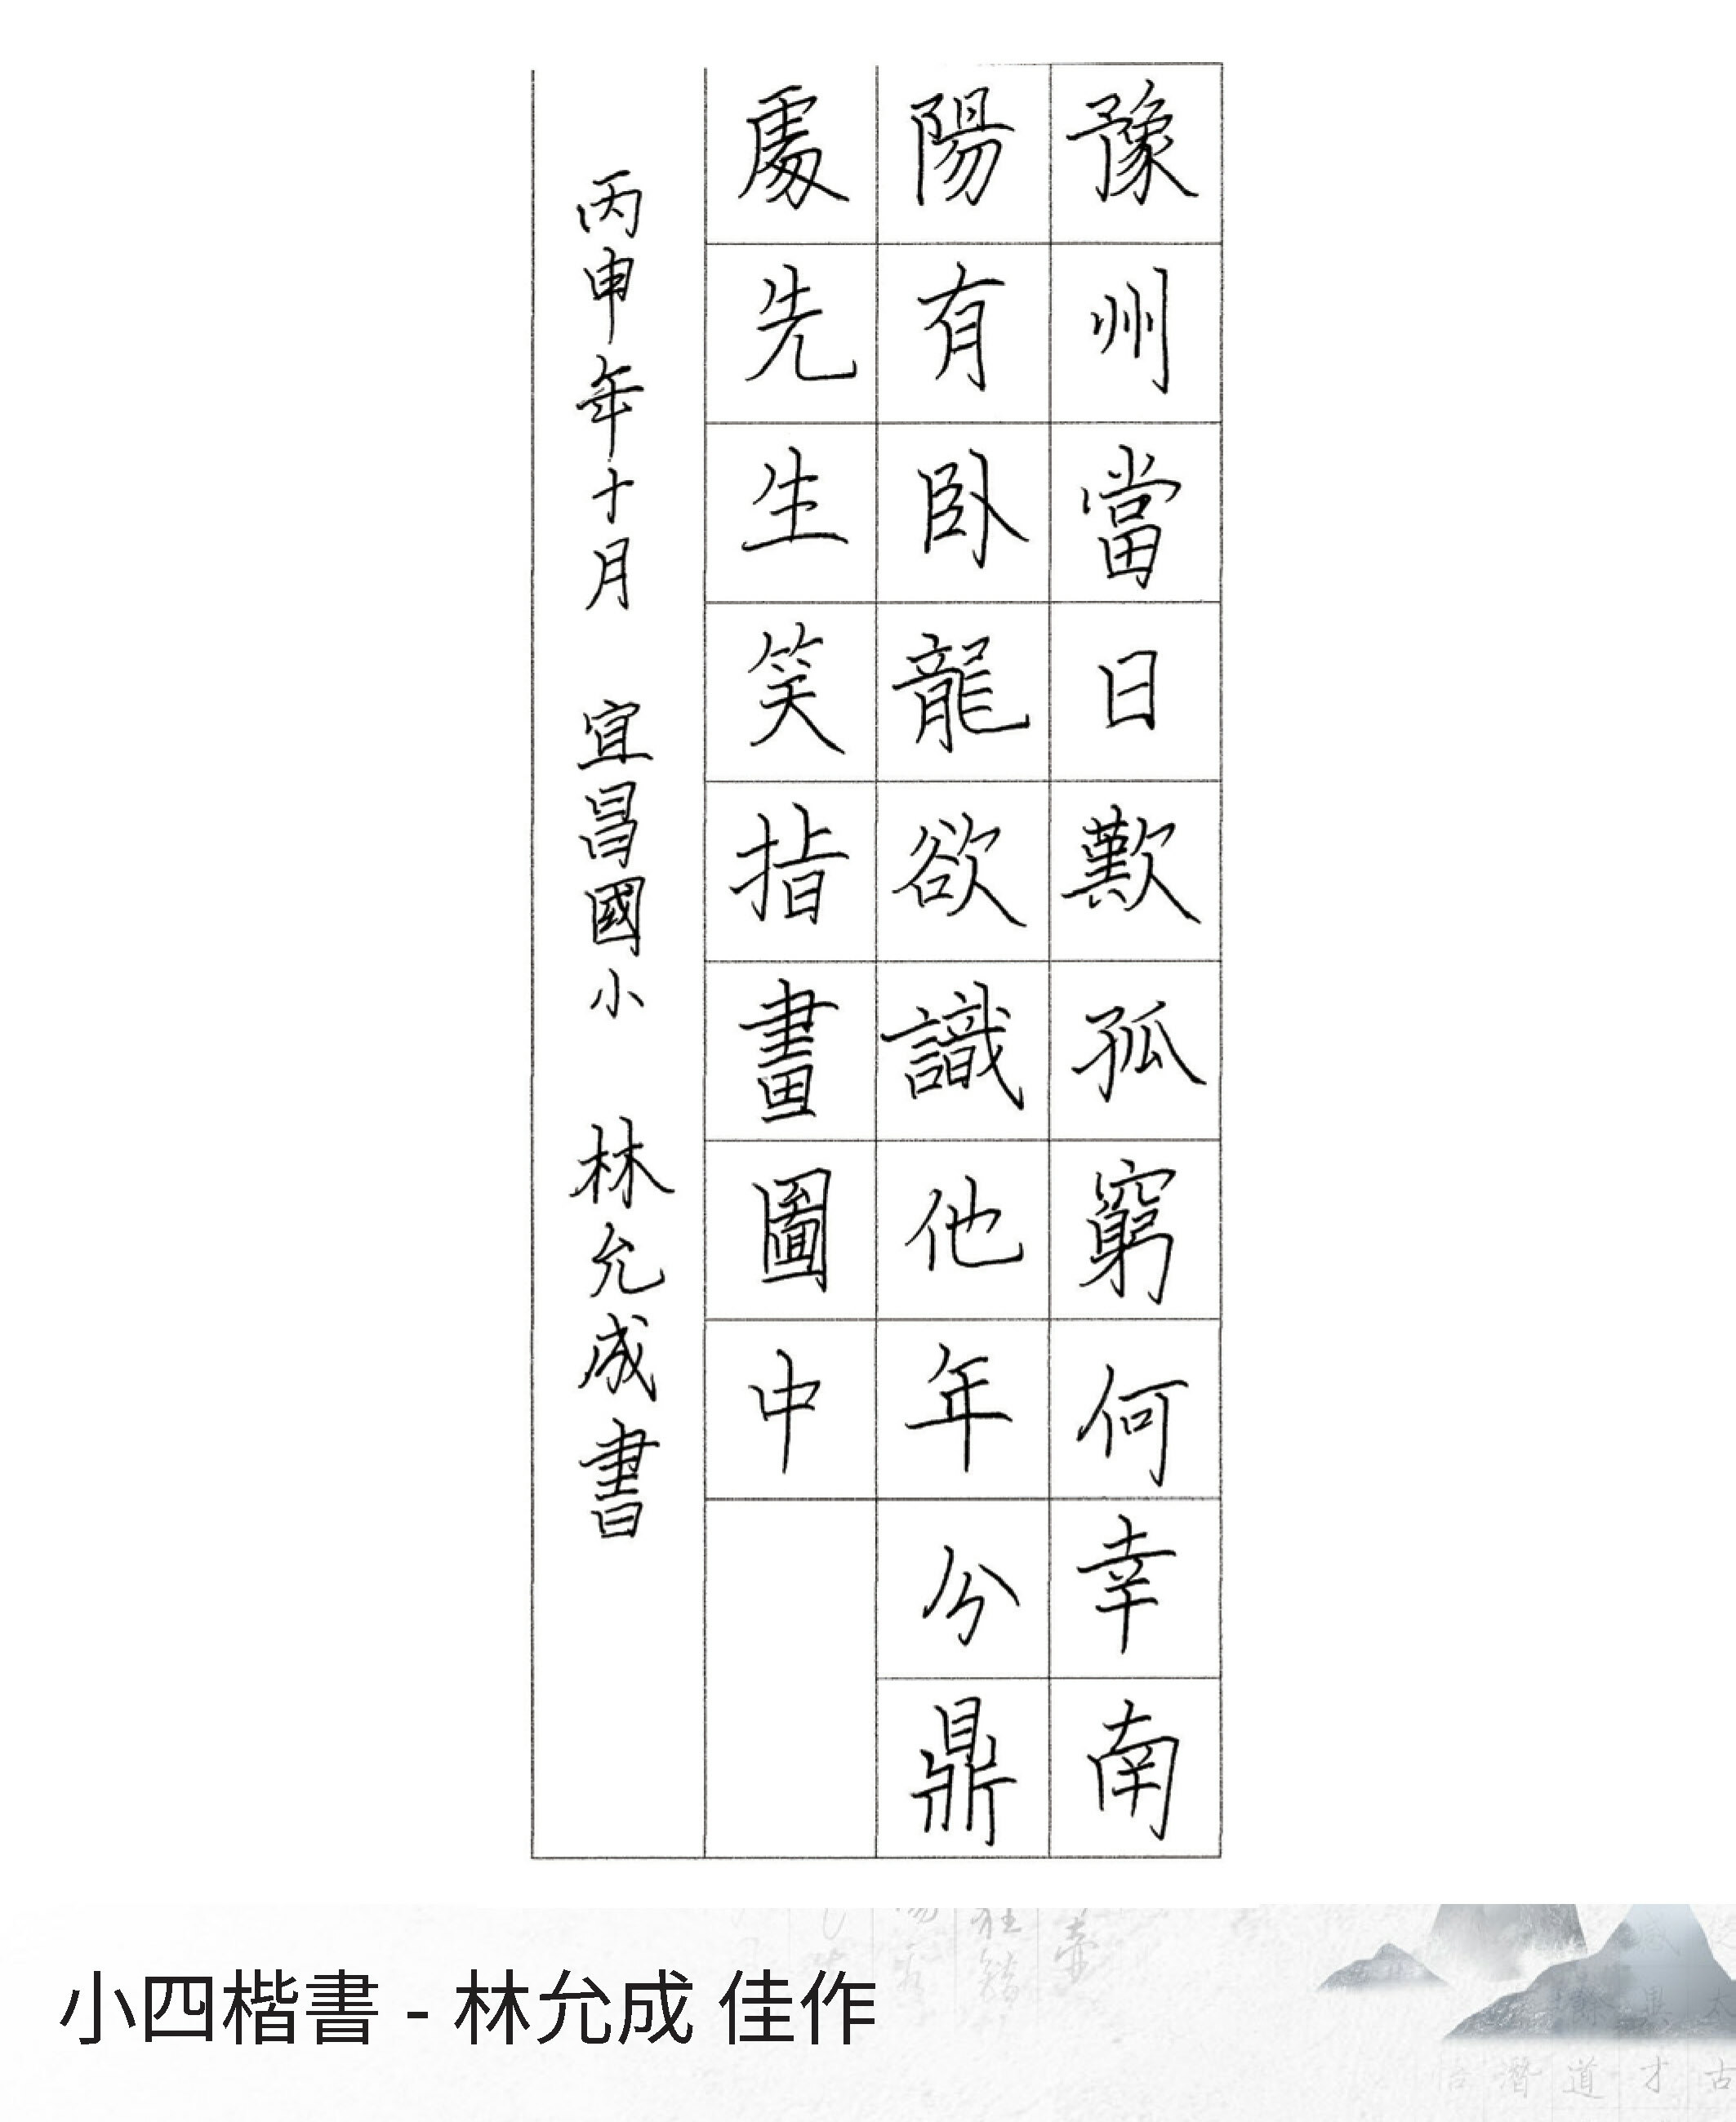 豫州當日歎孤窮何幸南
陽有臥龍欲識他年分鼎
處先生笑指畫圖中
丙申年十月 宜昌國小 林允成書
小四楷書 - 林允成 佳作